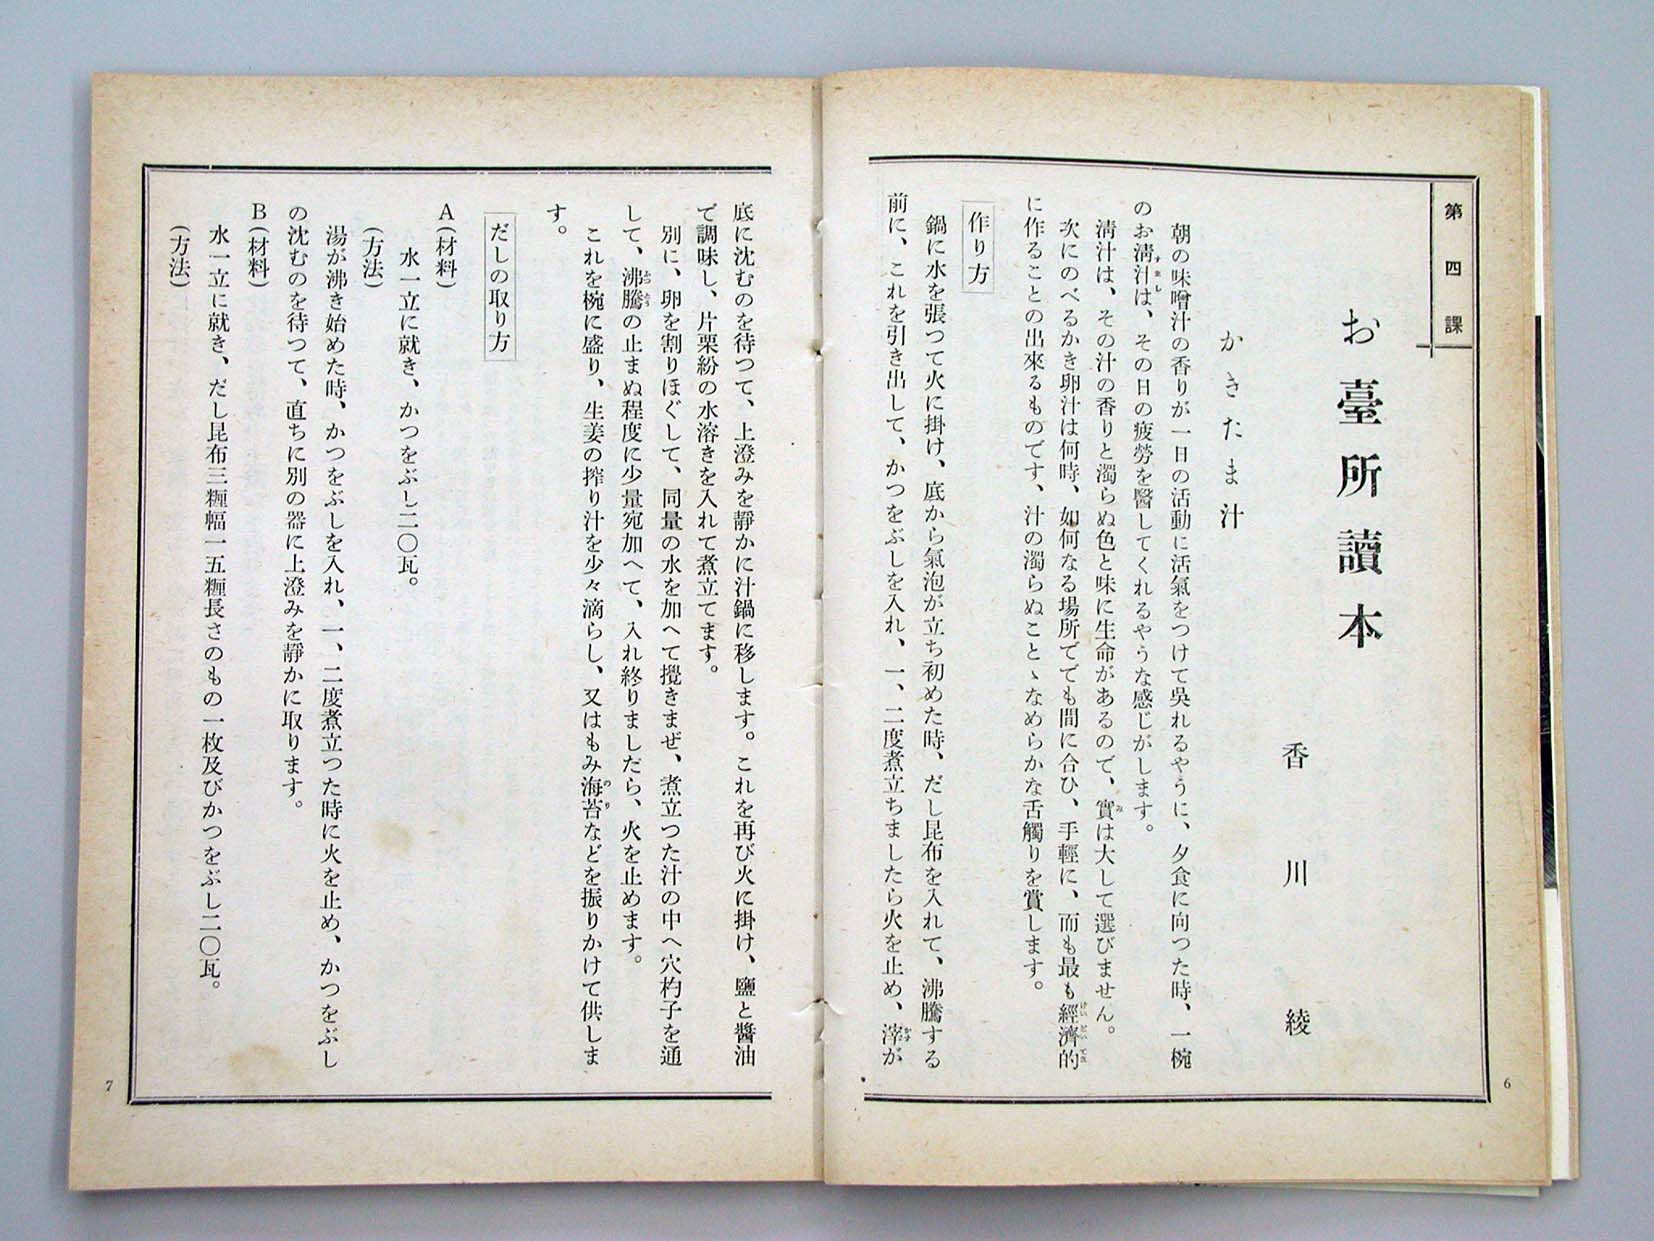 第四課
お臺所讀本
香川綾
かきたま汁
朝の味噌汁の香りが一日の活動に活氣をつけて吳れるやうに、夕食に向つた時、一椀
のお淸汁は、その日の疲勞を醫してくれるやうな感じがします。
すまし
淸汁は、その汁の香りと濁らぬ色と味に生命があるので、實は大して選びません。
み
次にのべるかき卵汁は何時、如何なる場所ででも間に合ひ、手輕に、而も最も經濟的
けいざいてき
に作ることの出來るものです、汁の濁らぬことゝなめらかな舌觸りを賞します。
作り方
鍋に水を張つて火に掛け、底から氣泡が立ち初めた時、だし昆布を入れて、沸騰する
前に、これを引き出して、かつをぶしを入れ、一、二度煮立ちましたら火を止め、滓が
かす
6
底に沈むのを待つて、上澄みを靜かに汁鍋に移します。これを再び火に掛け、鹽と醬油
で調味し、片栗紛の水溶きを入れて煮立てます。
別に、卵を割りほぐして、同量の水を加へて攪きまぜ、煮立つた汁の中へ穴杓子を通
して、沸騰の止まぬ程度に少量宛加へて、入れ終りましだら、火を止めます。
ふつとう
これを椀に盛り、生姜の搾り汁を少々滴らし、又はもみ海苔などを振りかけて供しま
のり
す。
だしの取り方
A(材料)
水一立に就き、かつをぶし二〇瓦。
(方法)
湯が沸き始めた時、かつをぶしを入れ、一、二度煮立つた時に火を止め、かつをぶし
の沈むのを待つて、直ちに別の器に上澄みを靜かに取ります。
B(材料)
水一立に就き、だし昆布三糎幅一五糎長さのもの一枚及びかつをぶし二〇瓦。
(方法)
7